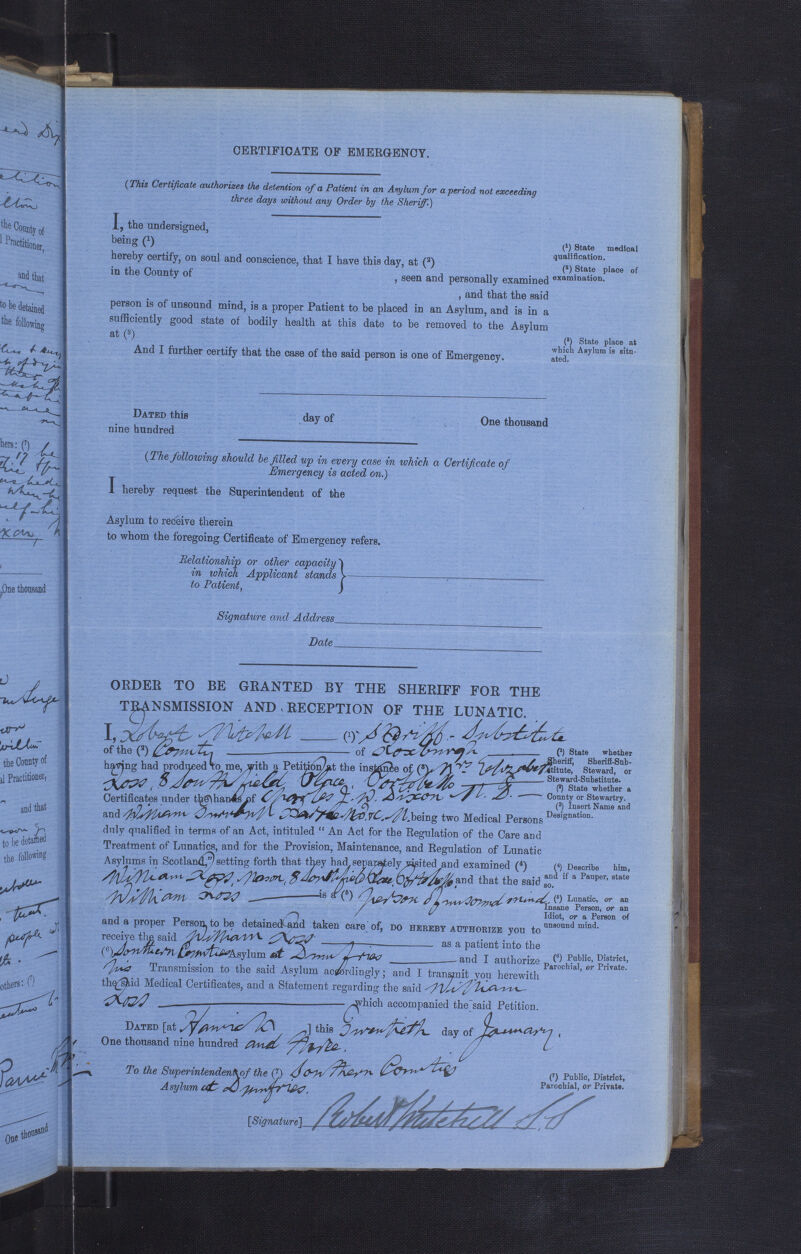 CERTIFICATE OF EMERGENCY.
(This Certificate authorizes the detention of a Patient in an Asylum for a period not exceeding
three days without any Order by the Sheriff.)
I, the undersigned,
being (¹)
hereby certify, on soul and conscience, that I have this day, at (²)
in the County of , seen and personally examined
, and that the said
person is of unsound mind, is a proper Patient to be placed in an Asylum, and is in a
sufficiently good state of bodily health at this date to be removed to the Asylum
at (³)
And I further certify that the case of the said person is one of Emergency.
(¹) State medical
qualification.
(²) State place of
examination.
(³) State place at
which Asylum is situ-
ated.
DATED this day of One thousand
nine hundred
(The following should be filled up in every case in which a Certificate of
Emergency is acted on.)
I hereby request the Superintendent of the
Asylum to receive therein
to whom the foregoing Certificate of Emergency refers.
Relationship or other capacity
in which Applicant stands
to Patient,
Signature and Address
Date
ORDER TO BE GRANTED BY THE SHERIFF FOR THE
TRANSMISSION AND RECEPTION OF THE LUNATIC.
I, Robert Mitchell (¹) Sheriff-Substitute
of the (²) County of Roxburgh
having had produced to me, with a Petition at the instance of (³) Mrs Elizabeth
Ross, 8 Southfield Place, Portobello
Certificates under the hands of Charles J. W. Dixon M. D.
and William being two Medical Persons
duly qualified in terms of an Act, intituled "An Act for the Regulation of the Care and
Treatment of Lunatics, and for the Provision, Maintenance, and Regulation of Lunatic
Asylums in Scotland," setting forth that they had separately visited and examined (⁴)
William Ross, Mason, 8 Southfield Place Portobello and that the said
William Ross is a (⁵) person of unsound mind,
and a proper Person to be detained and taken care of, DO HEREBY AUTHORIZE you to
receive the said William Ross as a patient into the
(⁶) Southern Counties Asylum at Dumfries and I authorize
his Transmission to the said Asylum accordingly; and I transmit you herewith
the said Medical Certificates, and a Statement regarding the said William
Ross which accompanied the said Petition.
(¹) State whether
Sheriff, Sheriff-Sub-
stitute, Steward, or
Steward-Substitute.
(²) State whether a
County or Stewartry.
(³) Insert Name and
Designation.
(⁴) Describe him,
and if a Pauper, state
so.
(⁵) Lunatic, or an
Insane Person, or an
Idiot, or a Person of
unsound mind.
(⁶) Public, District,
Parochial, or Private.
DATED [at Hawick ] this Twentieth day of January,
One thousand nine hundred and three.
To the Superintendent of the (⁷) Southern Counties
Asylum at Dumfries.
(⁷) Public, District,
Parochial, or Private.
[Signature] Robert Mitchell S.S
the County of
Practitioner,
and that
to be detained
the following
One thousand
the County of
Practitioner,
and that
to be detained
the following
others: (⁷)
One thousand